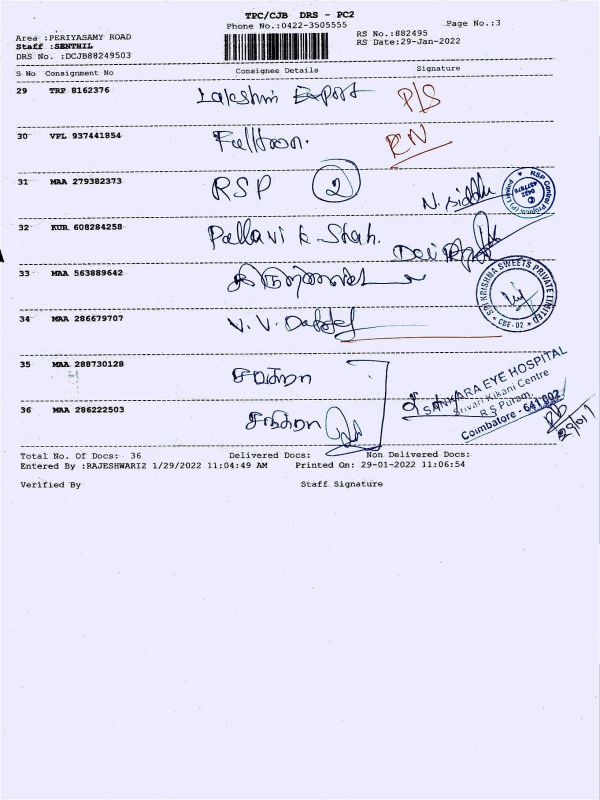 TPC/CJB DRS - PC2
Phone No.:0422-3505555
Page No.:3
Area :PERIYASAMY ROAD
RS No.:882495
Staff :SENTHIL
RS Date:29-Jan-2022
DRS No. :DCJB88249503
S No Consignment No Consignee Details Signature
29 TRP 8162376 Lakshmi Export P/S
30 VPL 937441854 RN
31 MAA 279382373 RSP 2 N. Siddhu
32 KUR 608284258 Pallavi K Shah.
33 MAA 563889642
SRI KRISHNA SWEETS PRIVATE LIMITED
CBE-02
34 MAA 286679707 V. V.
35 MAA 288730128
SANKARA EYE HOSPITAL
Srivari Kikani Centre
R S Puram,
Coimbatore - 641 002
36 MAA 286222503
29/01
Total No. Of Docs: 36 Delivered Docs: Non Delivered Docs:
Entered By :RAJESHWARI2 1/29/2022 11:04:49 AM Printed On: 29-01-2022 11:06:54
Verified By Staff Signature